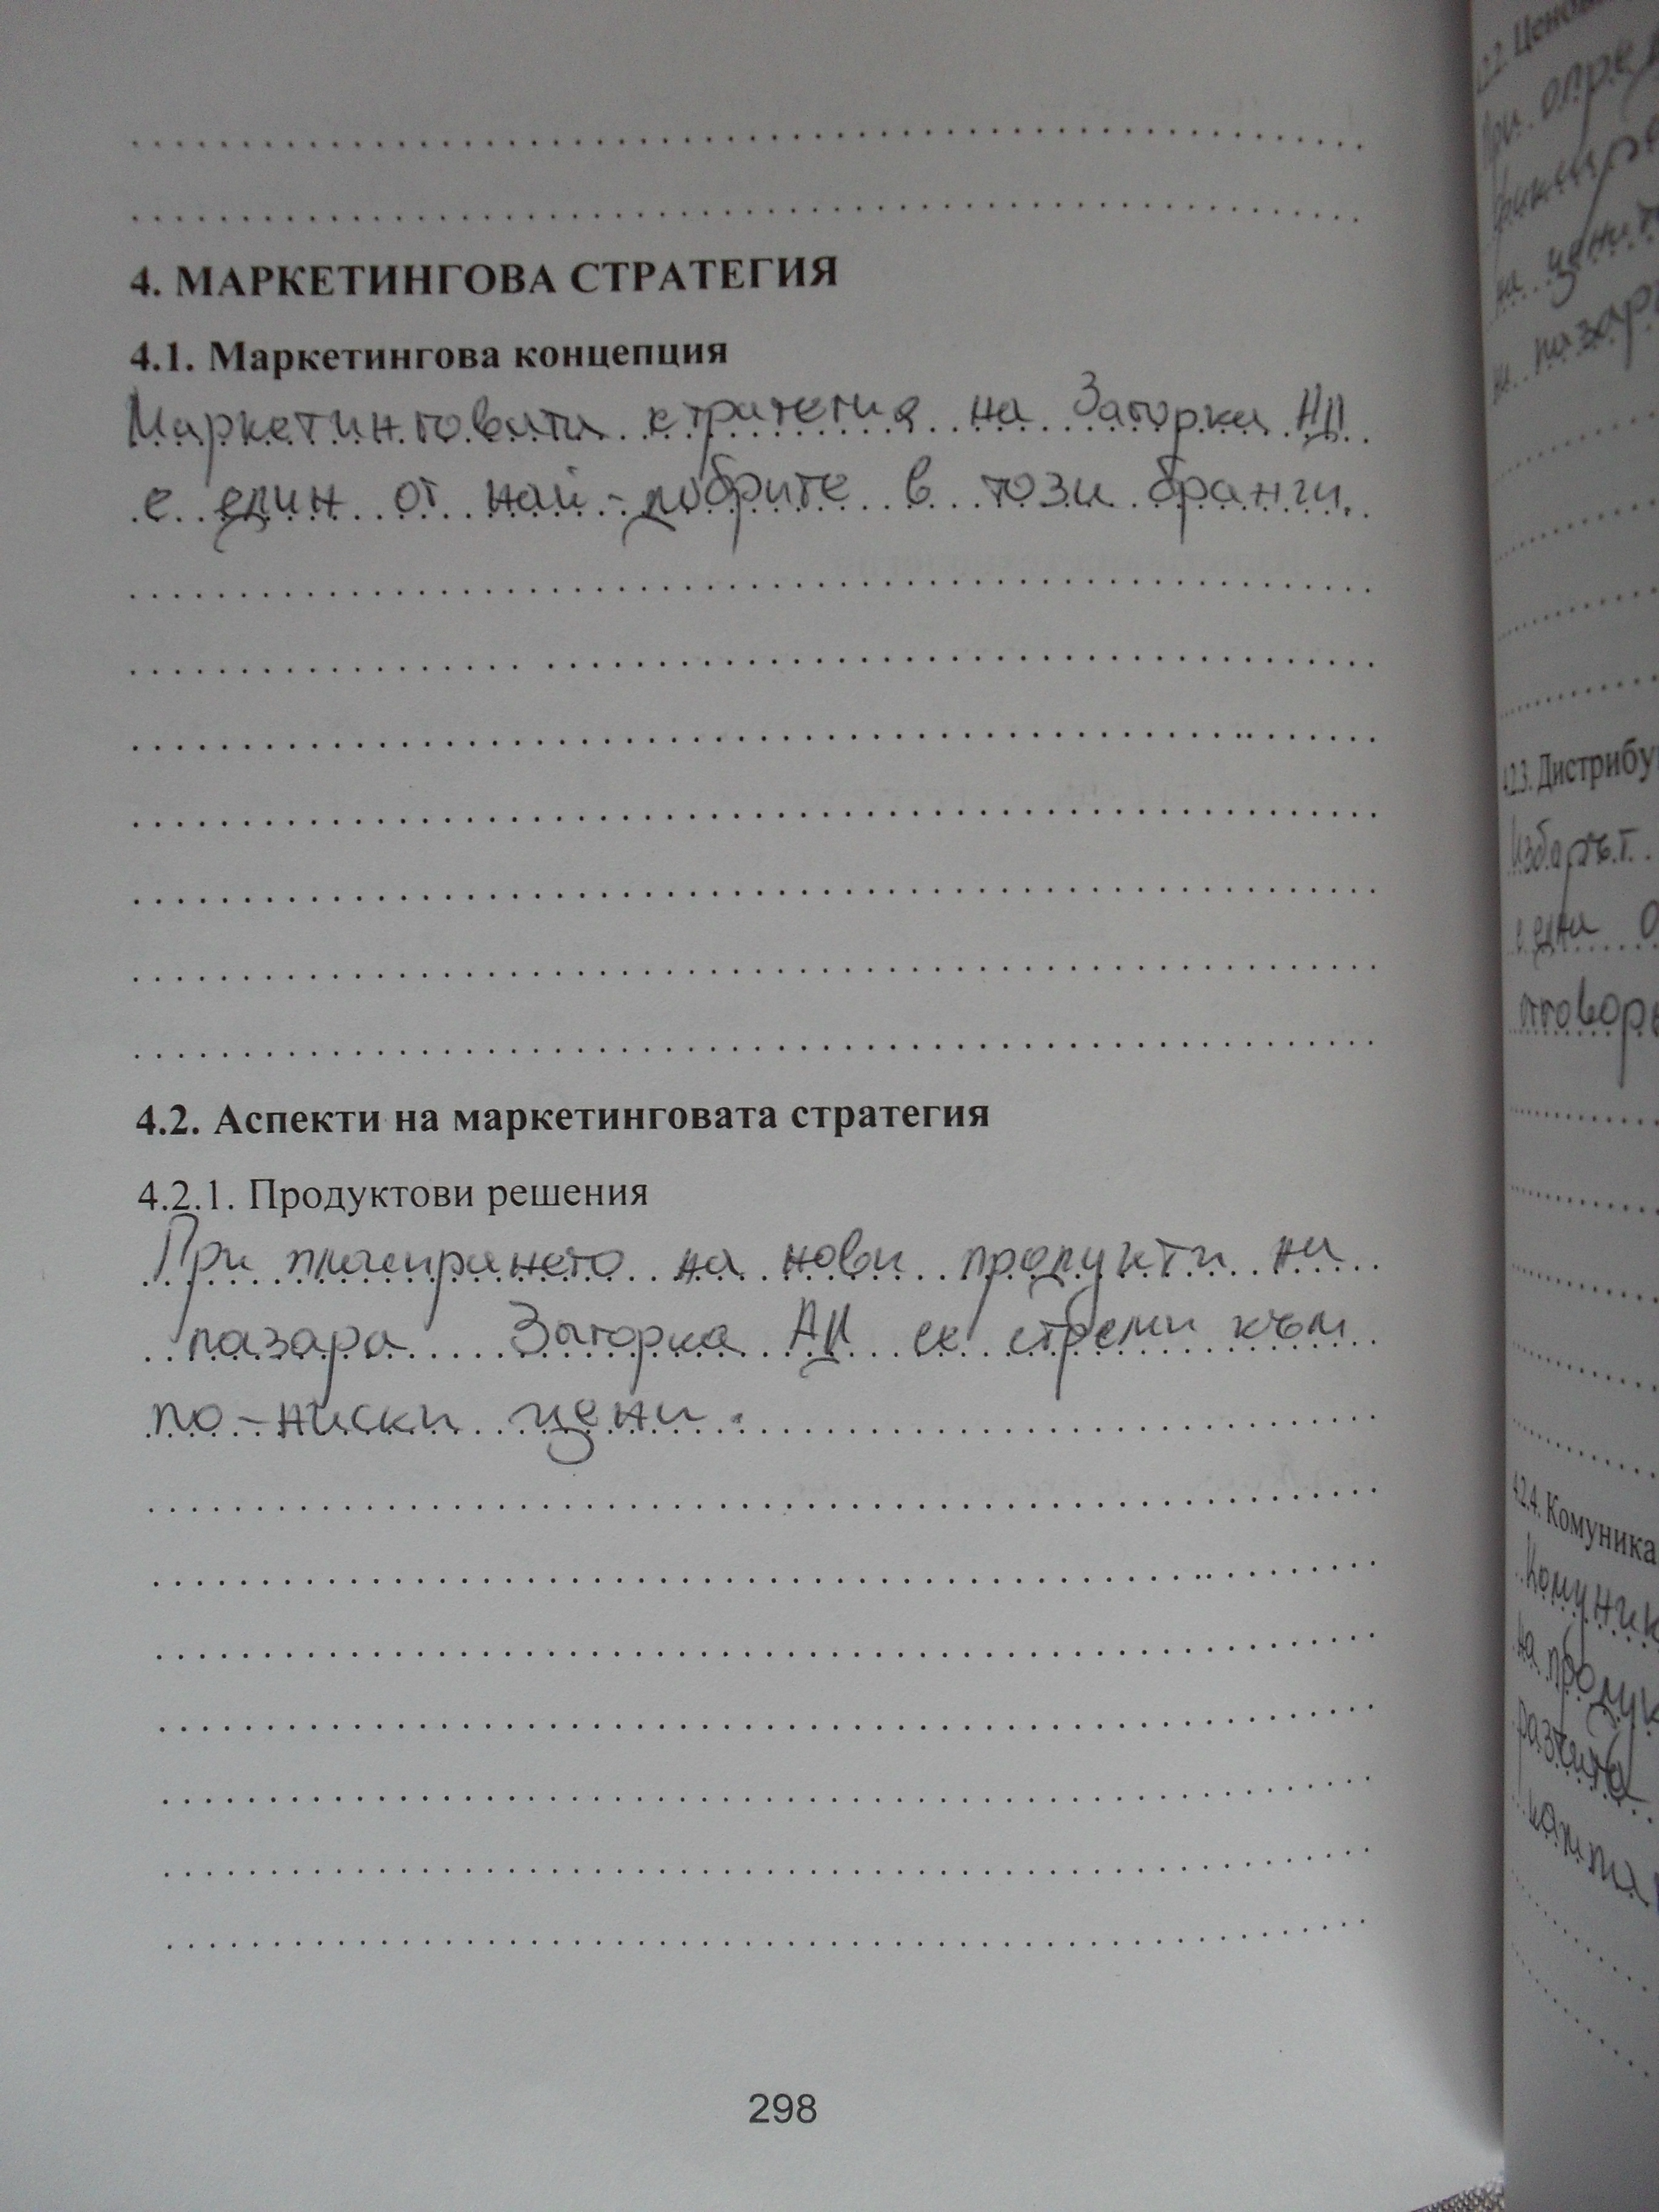 4. МАРКЕТИНГОВА СТРАТЕГИЯ
4.1. Маркетингова концепция
Маркетинговата стратегия на Загорка АД
е един от най-добрите в този бранш.
4.2. Аспекти на маркетинговата стратегия
4.2.1. Продуктови решения
При пласирането на нови продукти на
пазара Загорка АД се стреми към
по-ниски цени.
298
4.2.3. Дистрибу
Изборът
една
отговор
4.2.4. Комуника
Комуник
на продук